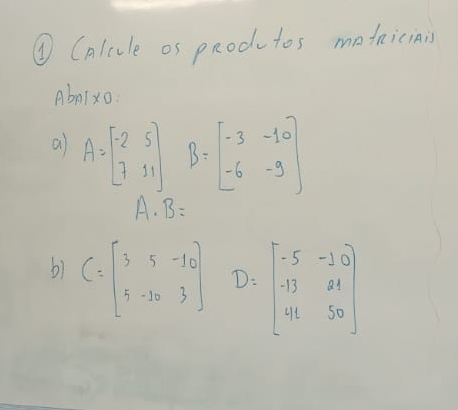 ① Calcule os produtos matriciais
Abaixo:
a) A = [-2 5
7 11] B = [-3 -10
-6 -9]
A . B =
b) C = [3 5 -10
5 -10 3] D = [-5 -10
-13 21
41 50]